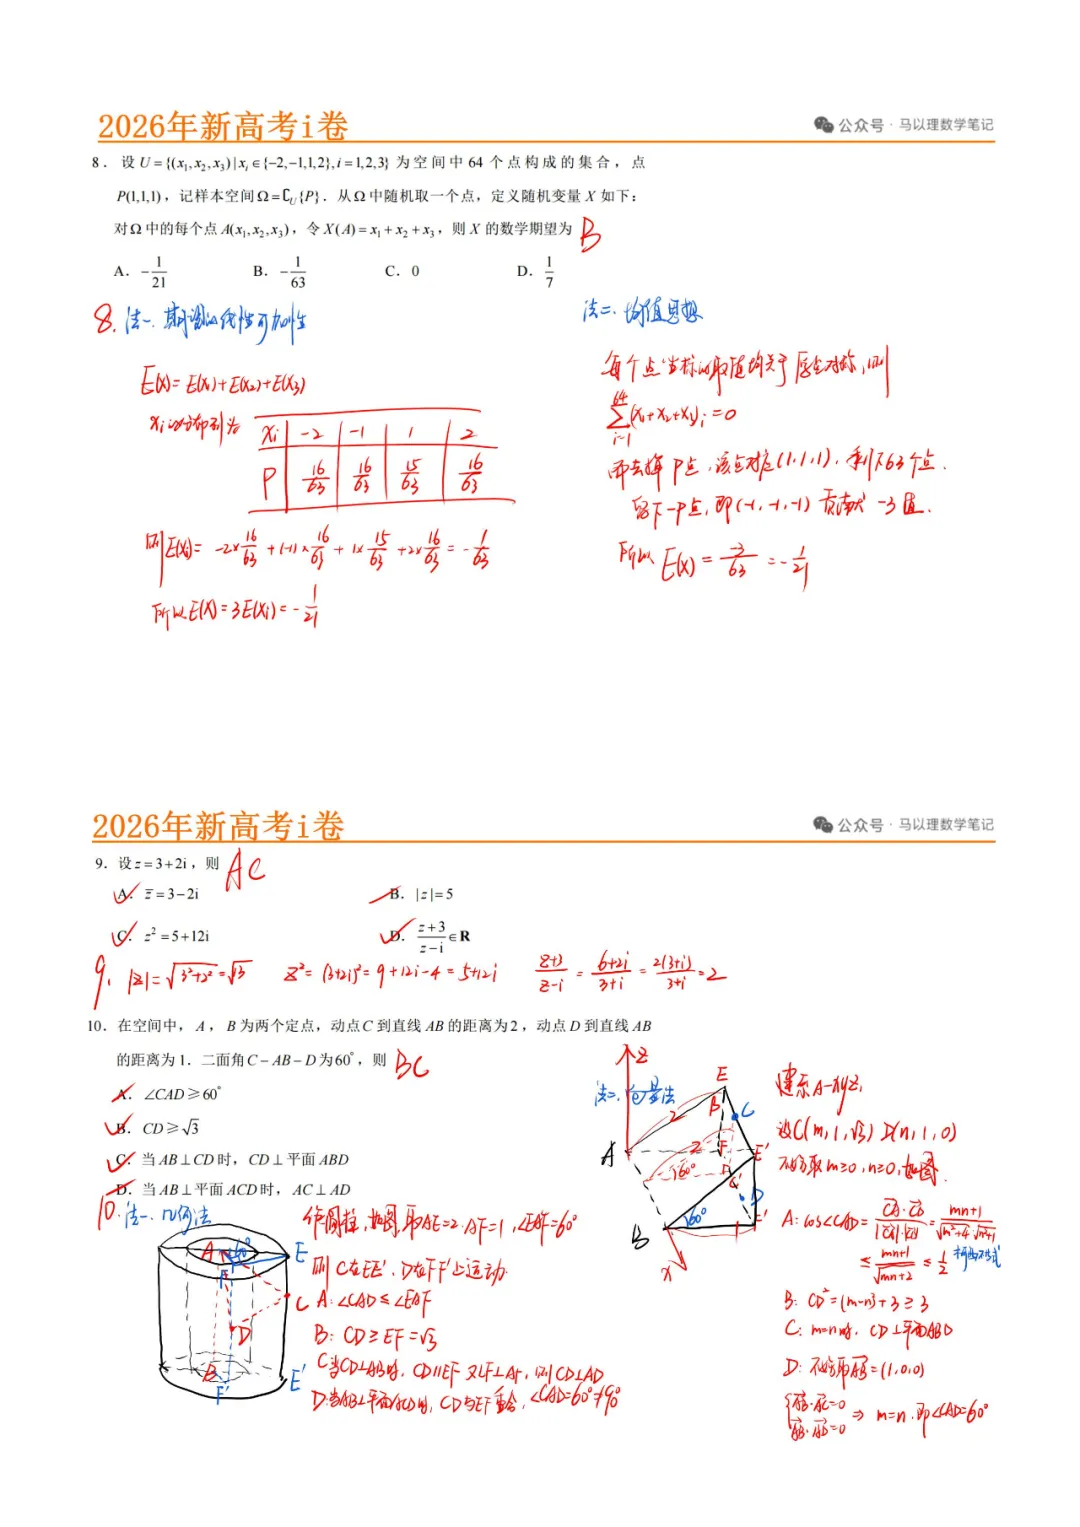 2026年新高考i卷
公众号·马以理数学笔记
8. 设U={(x₁,x₂,x₃)|xᵢ∈{-2,-1,1,2},i=1,2,3} 为空间中 64 个点构成的集合，点
P(1,1,1)，记样本空间Ω=∁ᵤ{P}．从Ω中随机取一个点，定义随机变量 X 如下：
对Ω中的每个点A(x₁,x₂,x₃)，令X(A)=x₁+x₂+x₃，则X的数学期望为 B
A．-1/21 B．-1/63 C．0 D．1/7
8. 法一. 期望的线性可加性
E(X)=E(X₁)+E(X₂)+E(X₃)
Xᵢ的分布列为
Xᵢ -2 -1 1 2
P 16/63 16/63 15/63 16/63
则E(Xᵢ)= -2×16/63+(-1)×16/63+1×15/63+2×16/63=-1/63
所以E(X)=3E(Xᵢ)=-1/21
法二. 均值思想
每个点坐标的取值均关于原点对称，则
64∑i=1(X₁+X₂+X₃)ᵢ=0
而去掉P点，该点对应(1,1,1)，剩下63个点.
留下一P点，即(-1,-1,-1)贡献-3值.
所以E(X)=-3/63=-1/21
2026年新高考i卷
公众号·马以理数学笔记
9．设z=3+2i，则 AC
A．z̄=3-2i B．|z|=5
C．z²=5+12i D．z+3/z-i∈R
9. |z|=√3²+2²=√13 z²=(3+2i)²=9+12i-4=5+12i z+3/z-i=6+2i/3+i=2(3+i)/3+i=2
10．在空间中，A，B为两个定点，动点C到直线AB的距离为2，动点D到直线AB
的距离为1．二面角C-AB-D为60°，则 BC
A．∠CAD≥60°
B．CD≥√3
C．当AB⊥CD时，CD⊥平面ABD
D．当AB⊥平面ACD时，AC⊥AD
10. 法一. 几何法
作圆柱，如图，即AE=2，AF=1，∠EAF=60°
则C在EE′，D在FF′上运动.
A：∠CAD≤∠EAF
B：CD≥EF=√3
C：当CD⊥AB时，CD∥EF 又EF⊥AF，则CD⊥AD
D：当AB⊥平面ACD时，CD与EF重合，∠CAD=60°≠90°
A 60° E
F
C
D
B
F′ E′
法二. 向量法
z
E
2 B C
A 2 F E′
60°
D
B 60° 1 F′
x
建系A-xyz，
设C(m,1,√3) D(n,1,0)
不妨取m≥0，n≥0，如图.
A：cos∠CAD=mn+1/√m²+4·√n²+1
≤mn+1/√mn+2≤1/2 柯西不等式
B：CD²=(m-n)²+3≥3
C：m=n时，CD⊥平面ABD
D：不妨取AB=(1,0,0)
{AB·AC=0
AB·AD=0 ⇒ m=n，即∠CAD=60°